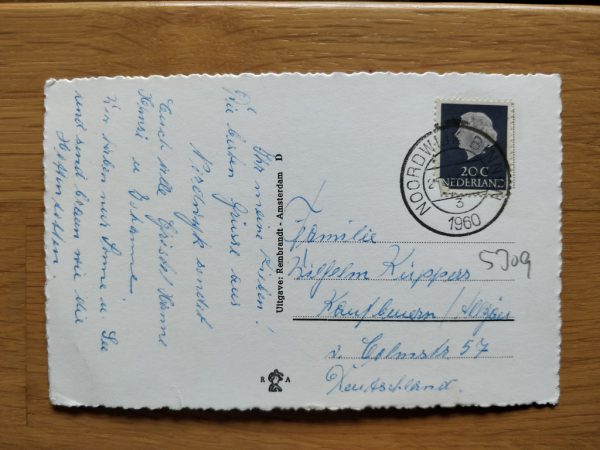 Ihr meine Lieben!
Die besten Grüße aus
Nordwijk sendet
Euch alle
Hansi u. Johanna.
Wir haben nur Sonne u. See
und sind braun wie die
Hottentotten
Uitgave: Rembrandt - Amsterdam D
R A
NEDERLAND
20 C
NOORDWIJK
3
1960
5709
Familie
Wilhelm Küppers
Kaufbeuern/Allgäu
v. Colmstr 57
Deutschland.